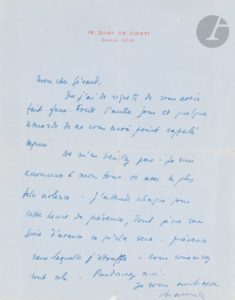 19, QUAI DE CONTI
Mon cher Gérard,
Que j'ai de regrets de vous avoir
fait faux bond l'autre jour et quelque
remords de ne vous avoir point rappelé
depuis.
Ne m'en veuillez pas - je suis
amoureux à mon tour et avec la plus
folle violence - J'attends chaque jour
cette heure de présence, dont je ne sais
jamais d'avance ce qu'elle sera - présence
sans laquelle j'étouffe - vous connaissez
tout cela. Pardonnez-moi.
Je vous embrasse